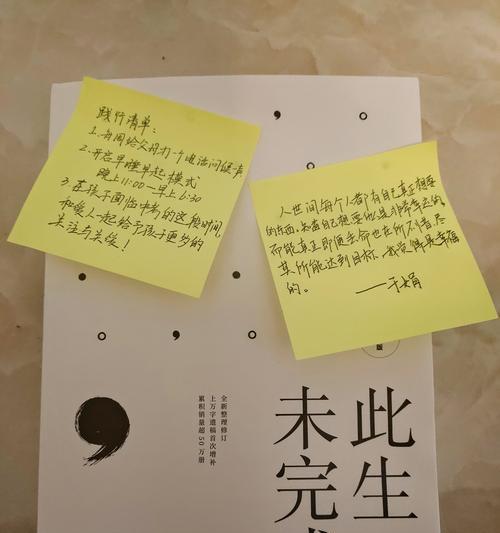 践行清单：
1、每周给父母打一个电话问候一声
2、开启早睡早起模式
晚上11:00—早上6:30
3、在孩子面临中考的这段时间
和爱人一起给予孩子更多的
关注与关爱！
人世间每个人都有自己真正想要
的东西，知道自己想要什么是非常幸运的
而能真正即便丢命也在所不惜尽
其所能达到目标，我觉得是幸福
的。
——于娟
版
此生
未完成
全新整理修订
上万字遗稿首次增补
累积销量超50万册